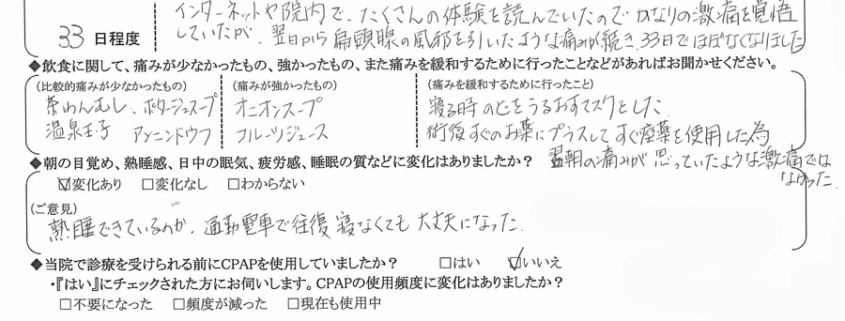 インターネットや院内で、たくさんの体験を読んでいたのでかなりの激痛を覚悟
していたが、翌日から扁頭腺の風邪を引いたような痛みが続き、33日でほぼなくなりました
33 日程度
◆飲食に関して、痛みが少なかったもの、強かったもの、また痛みを緩和するために行ったことなどがあればお聞かせください。
(比較的痛みが少なかったもの) (痛みが強かったもの) (痛みを緩和するために行ったこと)
茶わんむし、ポタージュスープ オニオンスープ 寝る時のどをうるおすマスクをした
温泉玉子 アンニンドウフ フルーツジュース 術後すぐのお薬にプラスしてすぐ座薬を使用した為
翌朝の痛みが思っていたような激痛では
なかった
◆朝の目覚め、熟睡感、日中の眠気、疲労感、睡眠の質などに変化はありましたか?
☑変化あり □変化なし □わからない
(ご意見)
熟睡できているのか、通勤電車で往復寝なくても大丈夫になった
◆当院で診療を受けられる前にCPAPを使用していましたか? □はい ☑いいえ
・『はい』にチェックされた方にお伺いします。CPAPの使用頻度に変化はありましたか?
□不要になった □頻度が減った □現在も使用中